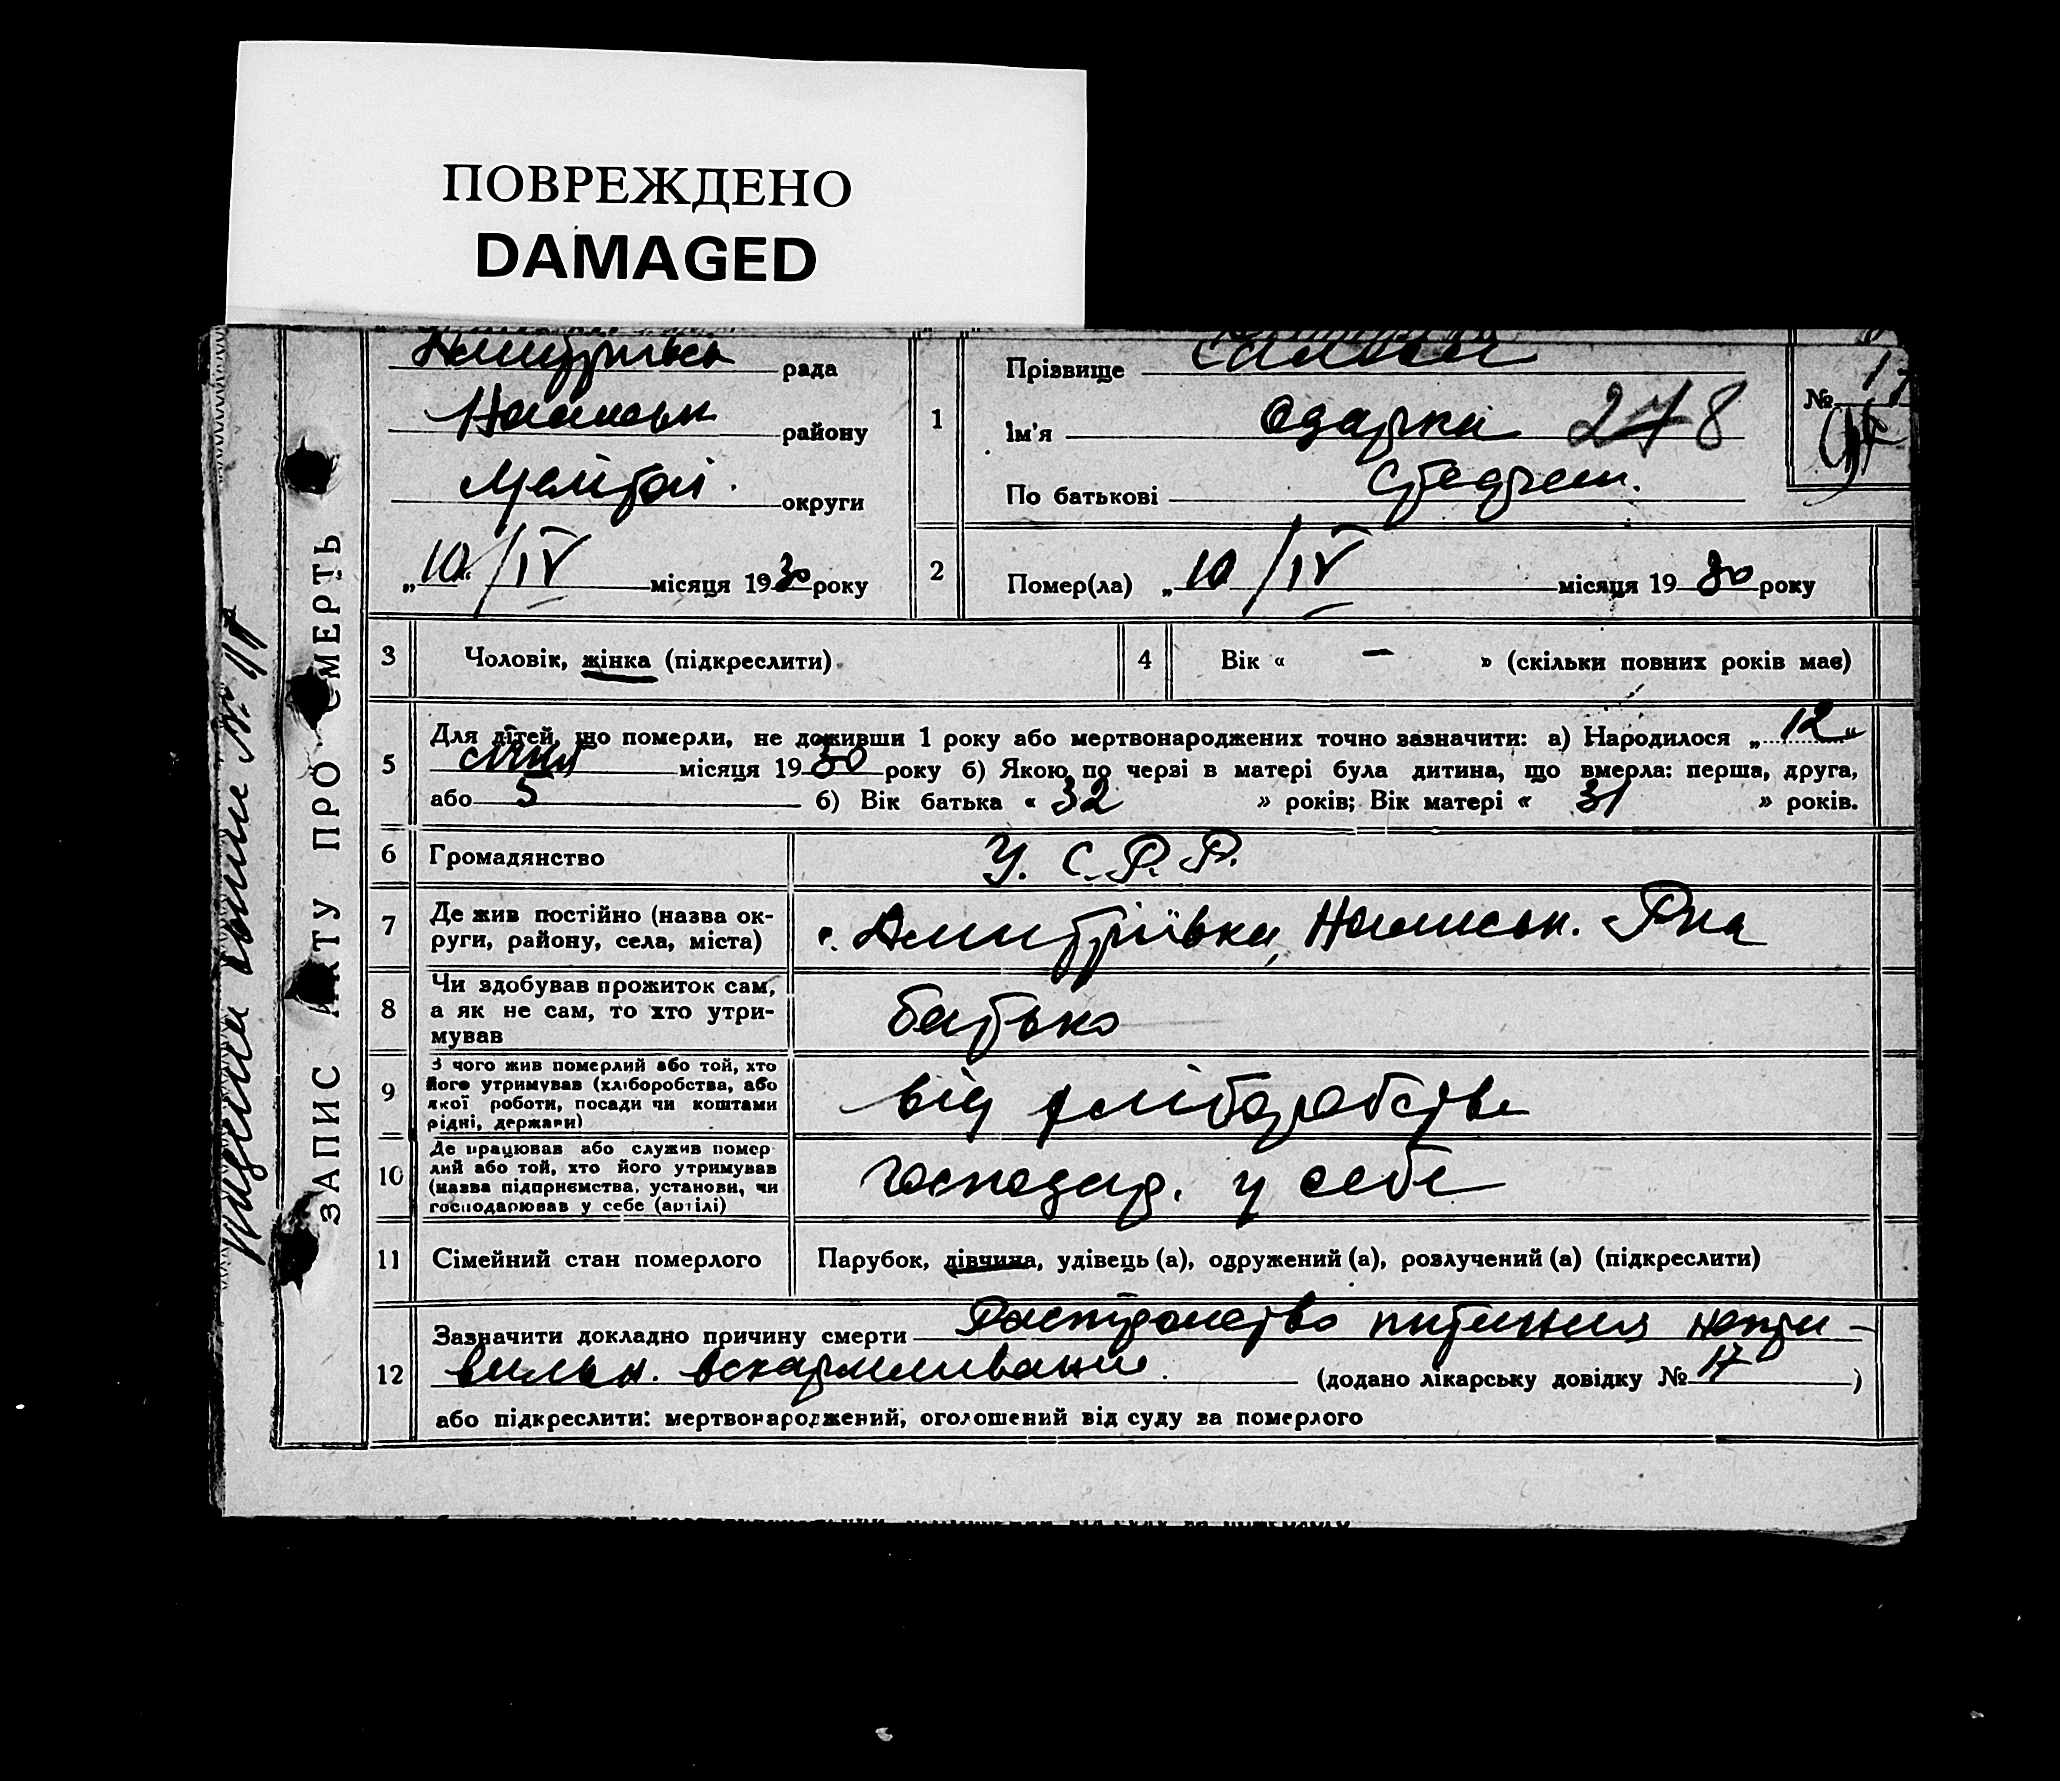 ПОВРЕЖДЕНО
DAMAGED
ЗАПИС АКТУ ПРО СМЕРТЬ
рада
району
округи
„10“ /IV місяця 1930 року
1 Прізвище
Ім'я Одарка 278
По батькові
№ 17
2 Помер(ла) „10 /IV місяця 1930 року
3 Чоловік, жінка (підкреслити)
4 Вік « — » (скільки повних років має)
5 Для дітей, що померли, не доживши 1 року або мертвонароджених точно зазначити: а) Народилося „12“
січня місяця 1930 року б) Якою по черзі в матері була дитина, що вмерла: перша, друга,
або 5 б) Вік батька « 32 » років; Вік матері « 31 » років.
6 Громадянство У. С. Р. Р.
7 Де жив постійно (назва ок-
руги, району, села, міста) с. Дмитріївка, Р-на
8 Чи здобував прожиток сам,
а як не сам, то хто утри-
мував батько
9 З чого жив померлий або той, хто
його утримував (хліборобства, або
якої роботи, посади чи коштами
рідні, держави) від хліборобства
10 Де працював або служив помер
лий або той, хто його утримував
(назва підприємства, установи, чи
господарював у себе (артілі) господар. у себе
11 Сімейний стан померлого Парубок, дівчина, удівець (а), одружений (а), розлучений (а) (підкреслити)
12 Зазначити докладно причину смерти питания непра-
вильн. вскармливание. (додано лікарську довідку № 17 )
або підкреслити: мертвонароджений, оголошений від суду за померлого